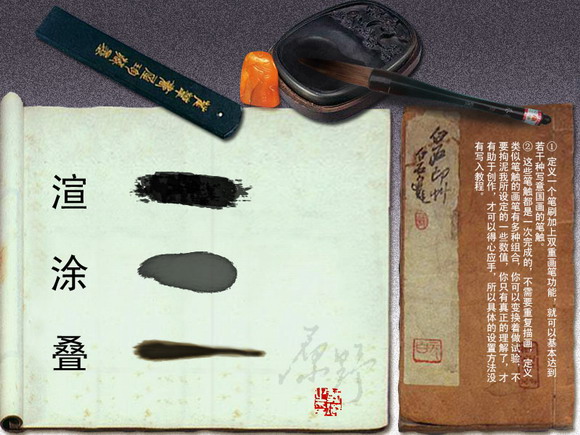 渲
涂
叠
原野
① 定义一个笔刷加上双重画笔功能，就可以基本达到
若干种写意国画的笔触。
② 这些笔触都是一次完成的，不需要重复描画，定义
类似笔触的画笔有多种组合，你可以变换着做试验，不
要拘泥我所设定的一些数值，你只有真正的理解了，才
有助于创作，才可以得心应手，所以具体的设置方法没
有写入教程